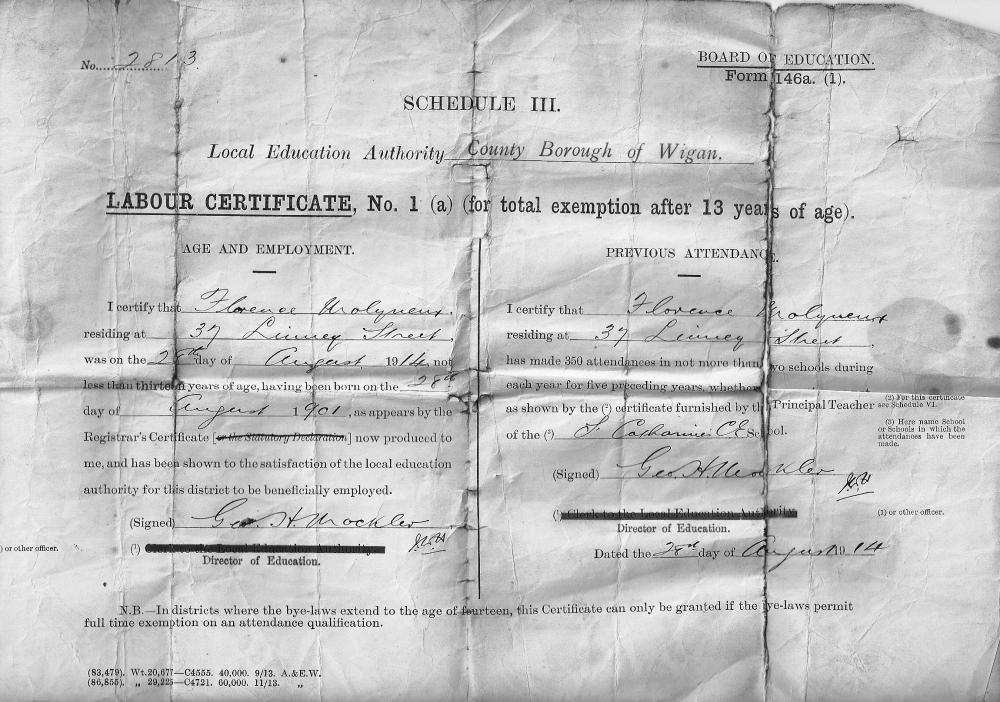 No. 2813
BOARD OF EDUCATION.
Form 146a. (1).
SCHEDULE III.
Local Education Authority County Borough of Wigan.
LABOUR CERTIFICATE, No. 1 (a) (for total exemption after 13 years of age).
AGE AND EMPLOYMENT.
I certify that Florence Molyneux,
residing at 37 Linney Street,
was on the 28th day of August 1914, not
less than thirteen years of age, having been born on the 28th
day of August 1901, as appears by the
Registrar's Certificate [or the Statutory Declaration] now produced to
me, and has been shown to the satisfaction of the local education
authority for this district to be beneficially employed.
(Signed) Geo. H. Mockler
(1) Clerk to the Local Education Authority.
) or other officer.
Director of Education.
PREVIOUS ATTENDANCE.
I certify that Florence Molyneux
residing at 37 Linney Street,
has made 350 attendances in not more than two schools during
each year for five preceding years, whether
as shown by the (2) certificate furnished by the Principal Teacher
of the (3) St Catharines CE School.
(2) For this certificate
see Schedule VI.
(3) Here name School
or Schools in which the
attendances have been
made.
(Signed) Geo. H. Mockler
(1) Clerk to the Local Education Authority
(1) or other officer.
Director of Education.
Dated the 28th day of August 1914
N.B.—In districts where the bye-laws extend to the age of fourteen, this Certificate can only be granted if the bye-laws permit
full time exemption on an attendance qualification.
(83,479). Wt.20,677—C4555. 40,000. 9/13. A.&E.W.
(86,855). „ 29,225—C4721. 60,000. 11/13. „